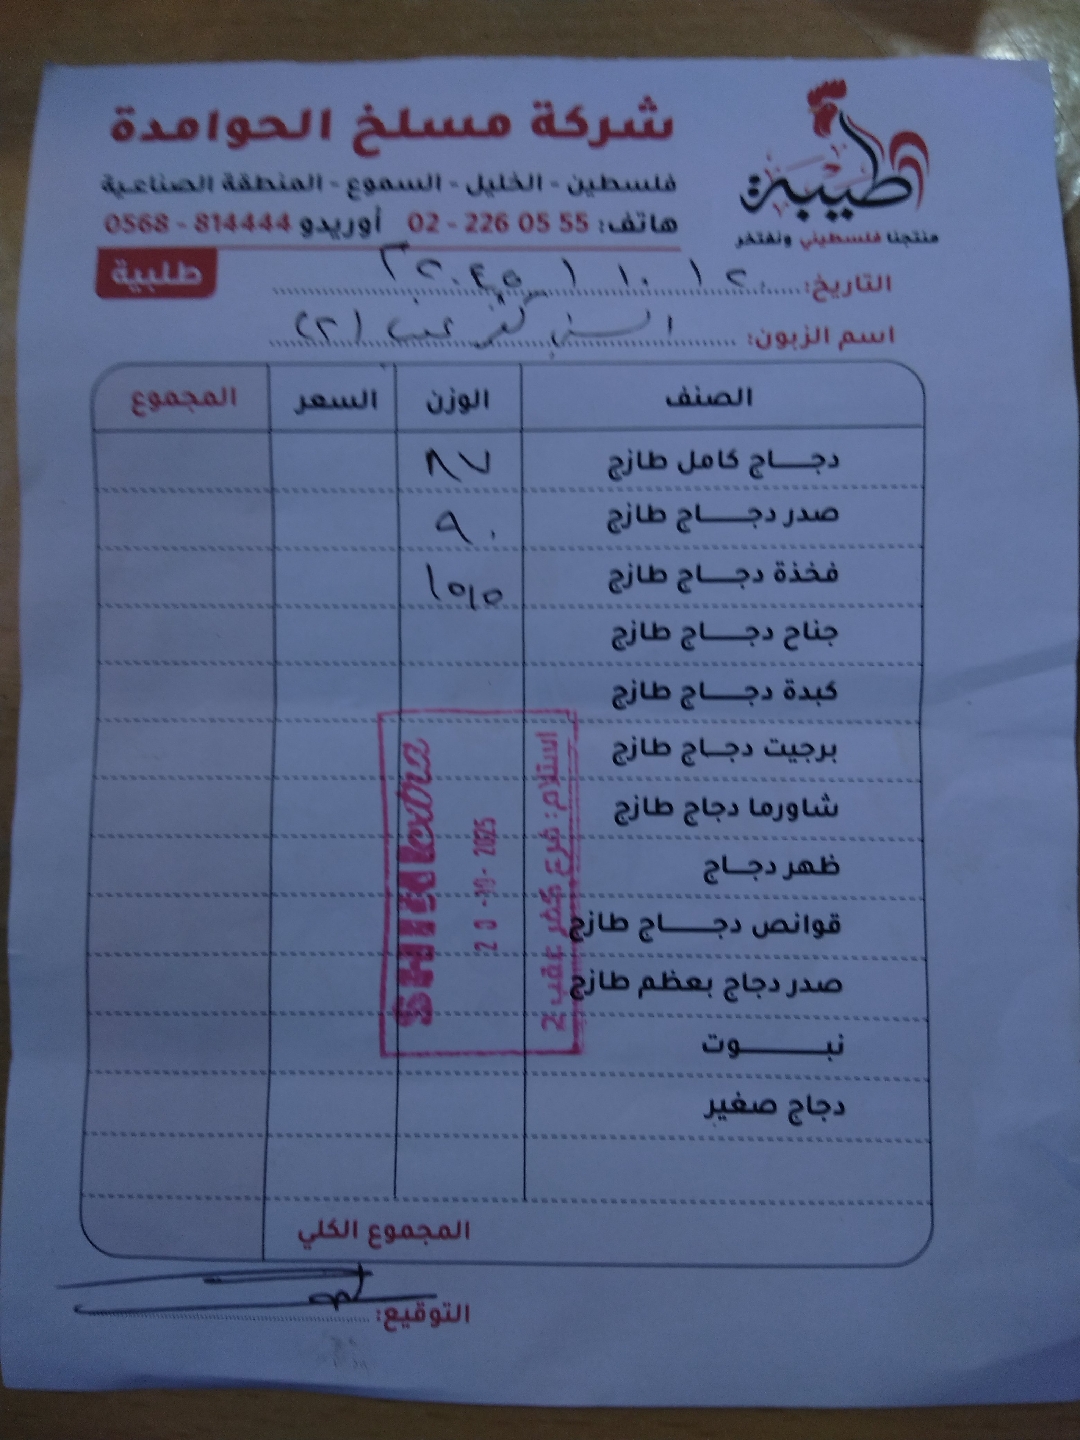 شركة مسلخ الحوامدة
فلسطين - الخليل - السموع - المنطقة الصناعية
هاتف: 02 - 226 05 55 أوريدو 0568 - 814444
طيبة
منتجنا فلسطيني ونفتخر
طلبية
التاريخ: ٢٠ / ١٠ /
اسم الزبون: (٢)
الصنف الوزن السعر المجموع
دجاج كامل طازج ٨٧
صدر دجاج طازج ٩٠
فخذة دجاج طازج
جناح دجاج طازج
كبدة دجاج طازج
برجيت دجاج طازج
شاورما دجاج طازج
ظهر دجاج
قوانص دجاج طازج
صدر دجاج بعظم طازج
نبوت
دجاج صغير
SHINI extra
20 -10- 2025
استلام: فرع كفر عقب 2
المجموع الكلي
التوقيع: